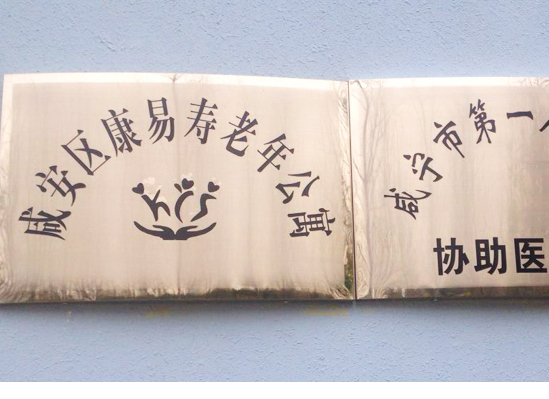 咸安区康易寿老年公寓
咸宁市第一
协助医